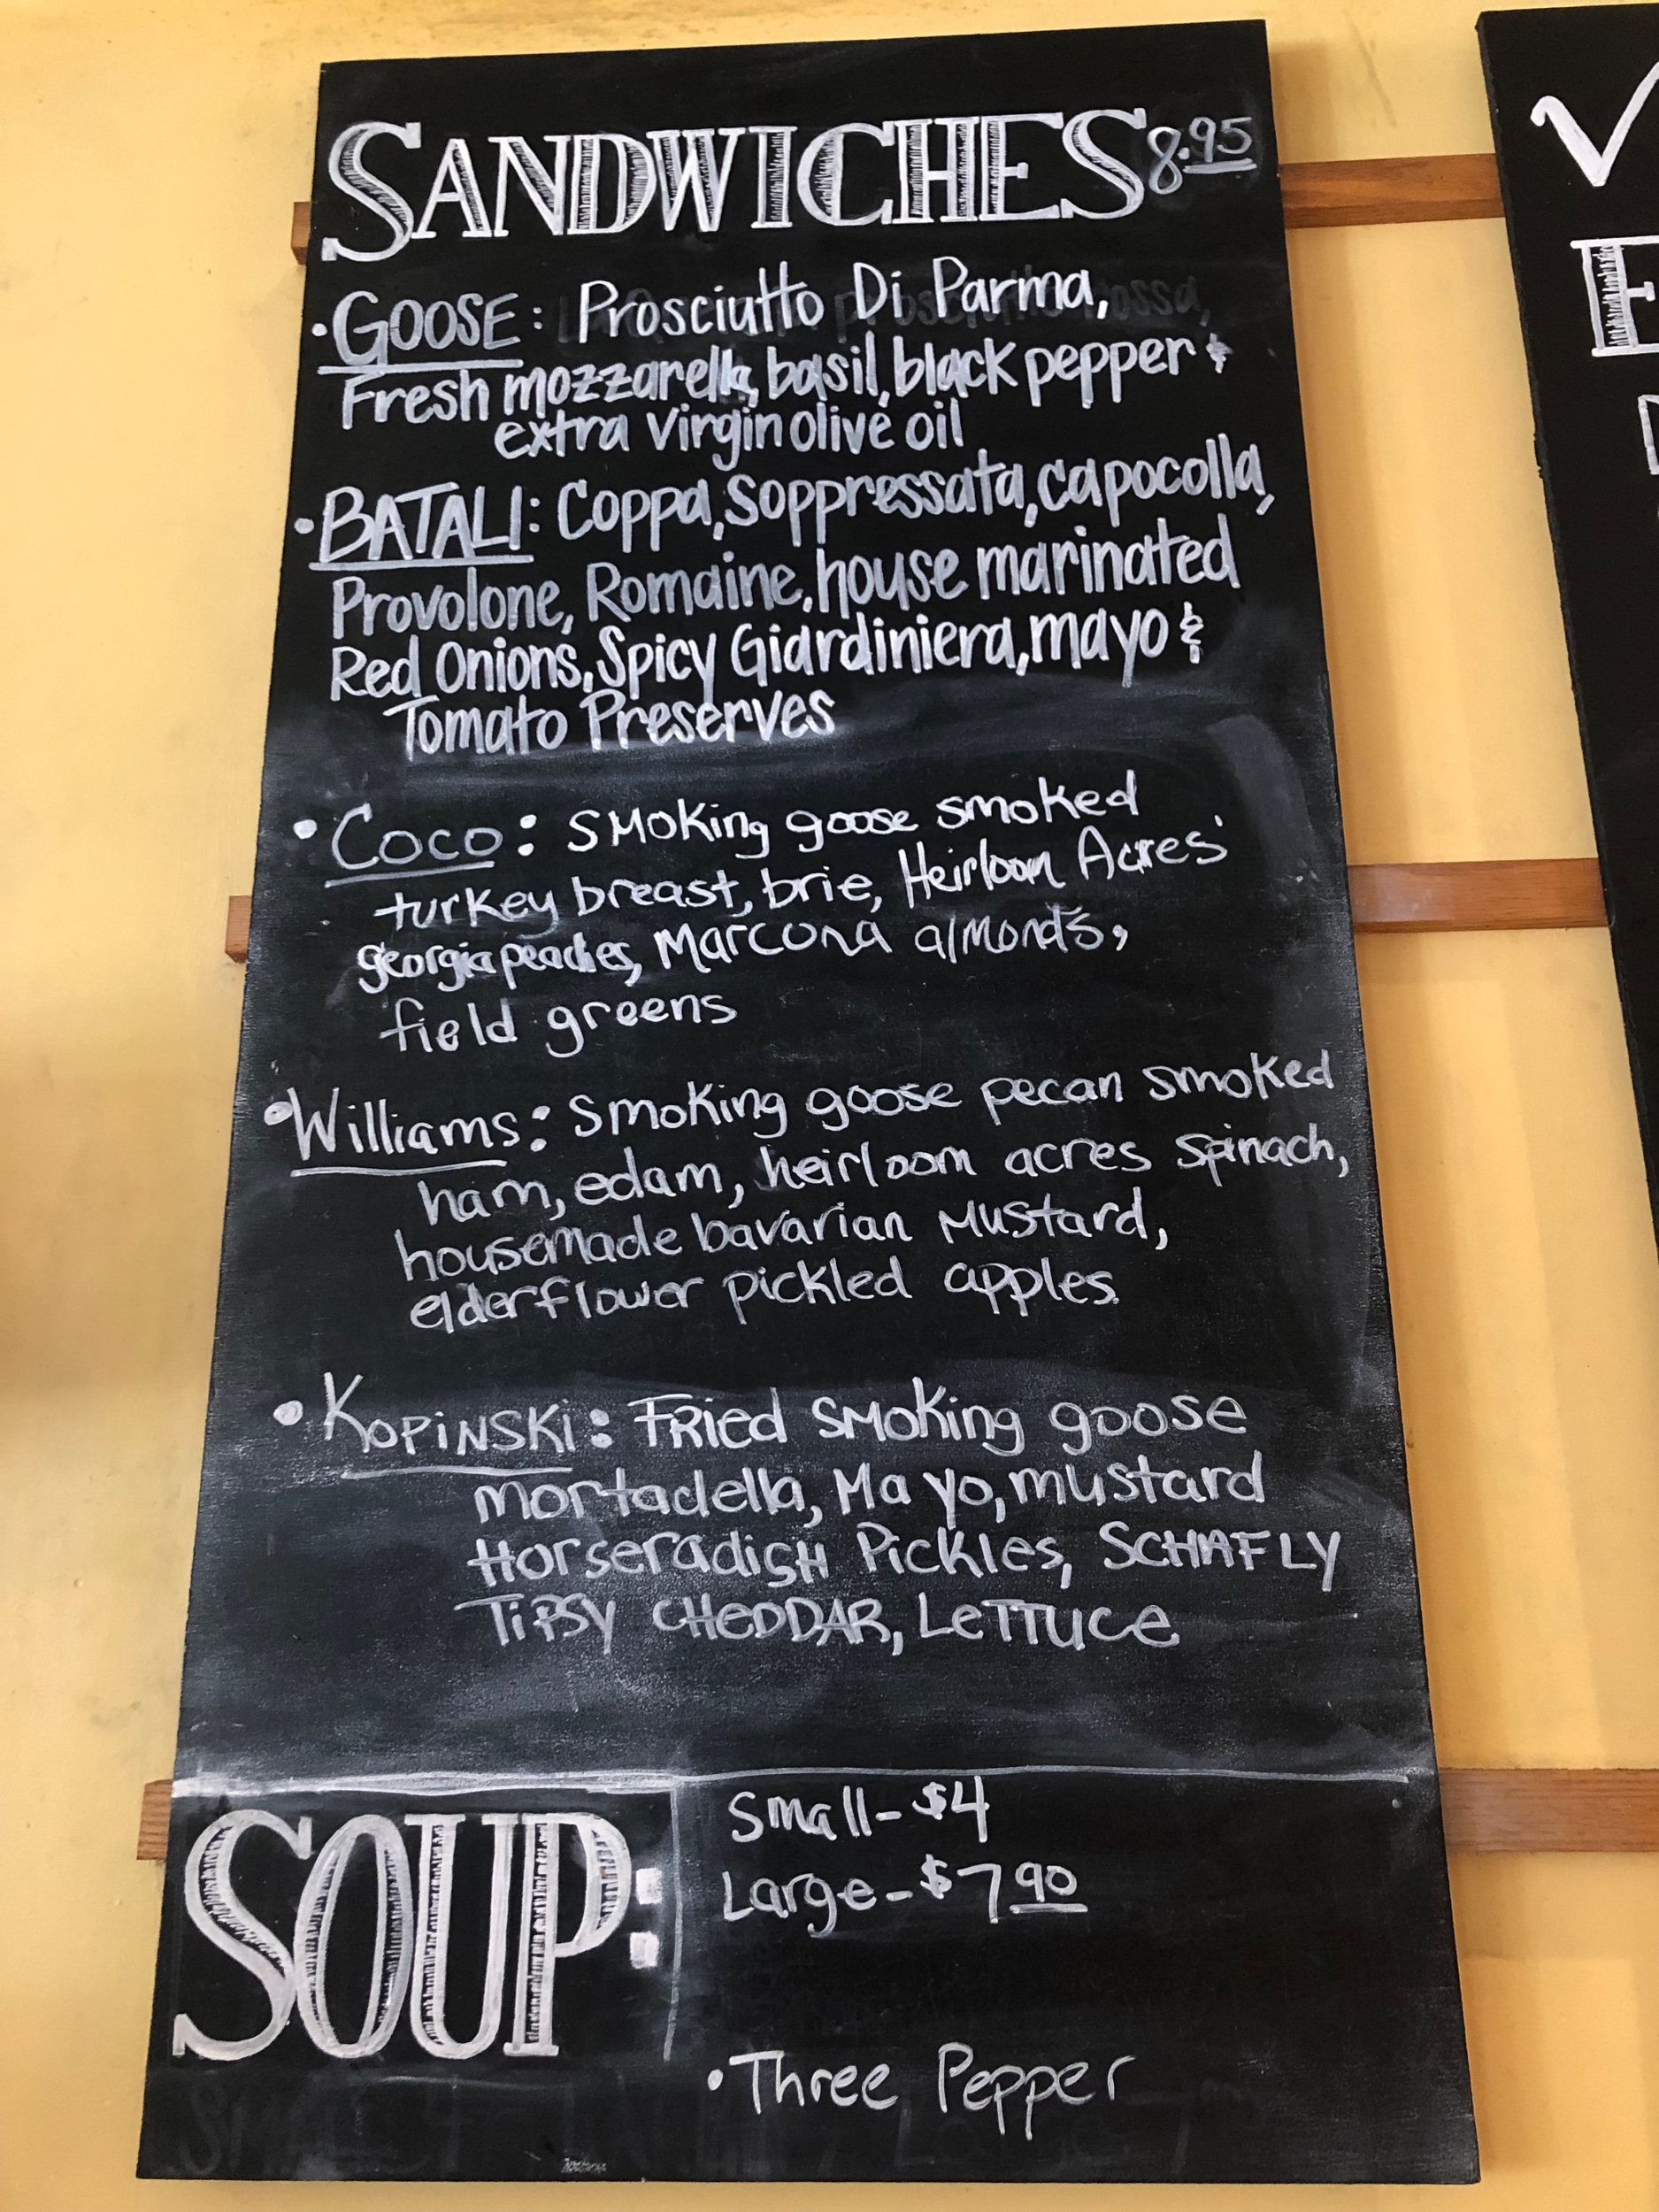 SANDWICHES 8.95
• GOOSE: Prosciutto Di Parma,
Fresh mozzarella, basil, black pepper &
extra virgin olive oil
• BATALI: Coppa, Soppressata, capocolla,
Provolone, Romaine, house marinated
Red Onions, Spicy Giardiniera, mayo &
Tomato Preserves
• Coco: Smoking goose smoked
turkey breast, brie, Heirloom Acres'
georgia peaches, Marcona almonds,
field greens
• Williams: Smoking goose pecan smoked
ham, edam, heirloom acres spinach,
housemade bavarian Mustard,
elderflower pickled apples.
• KOPINSKi: FRied SMoking goose
mortadella, Mayo, mustard
HorseradisH Pickles, SCHAFLY
TiPSY CHeDDAR, LeTTuce
SOUP:
Small - $4
Large - $7 90
• Three Pepper